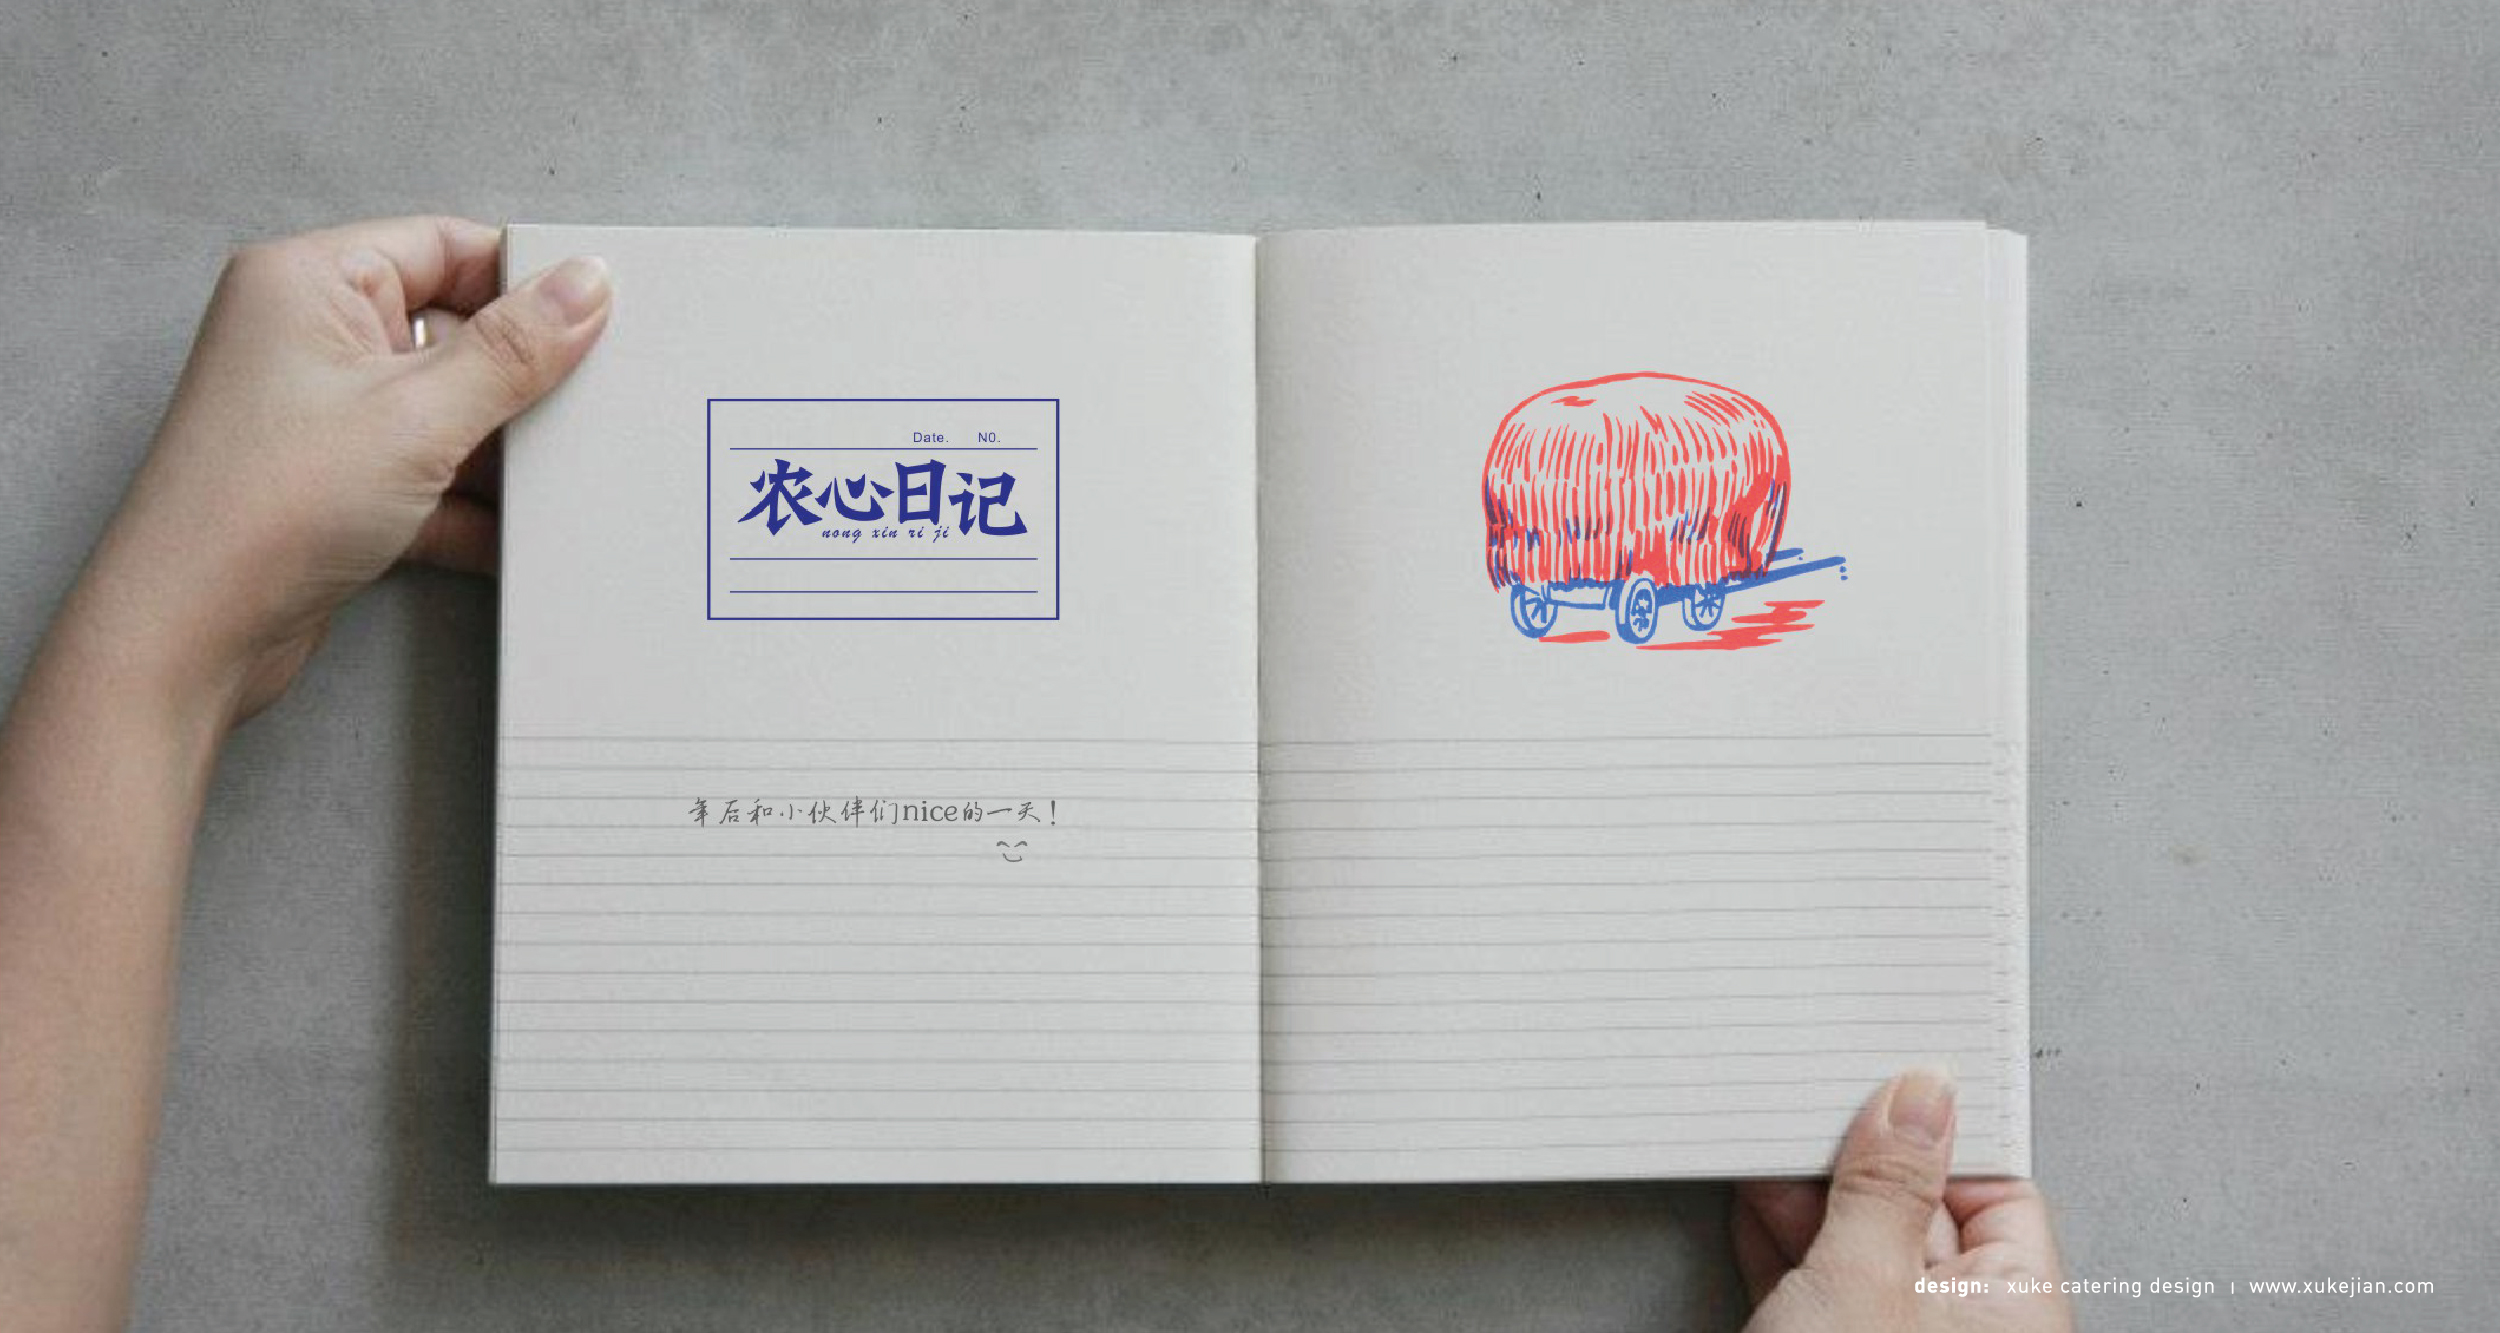 Date. N0.
农心日记
nong xin ri ji
年后和小伙伴们nice的一天!
design: xuke catering design | www.xukejian.com